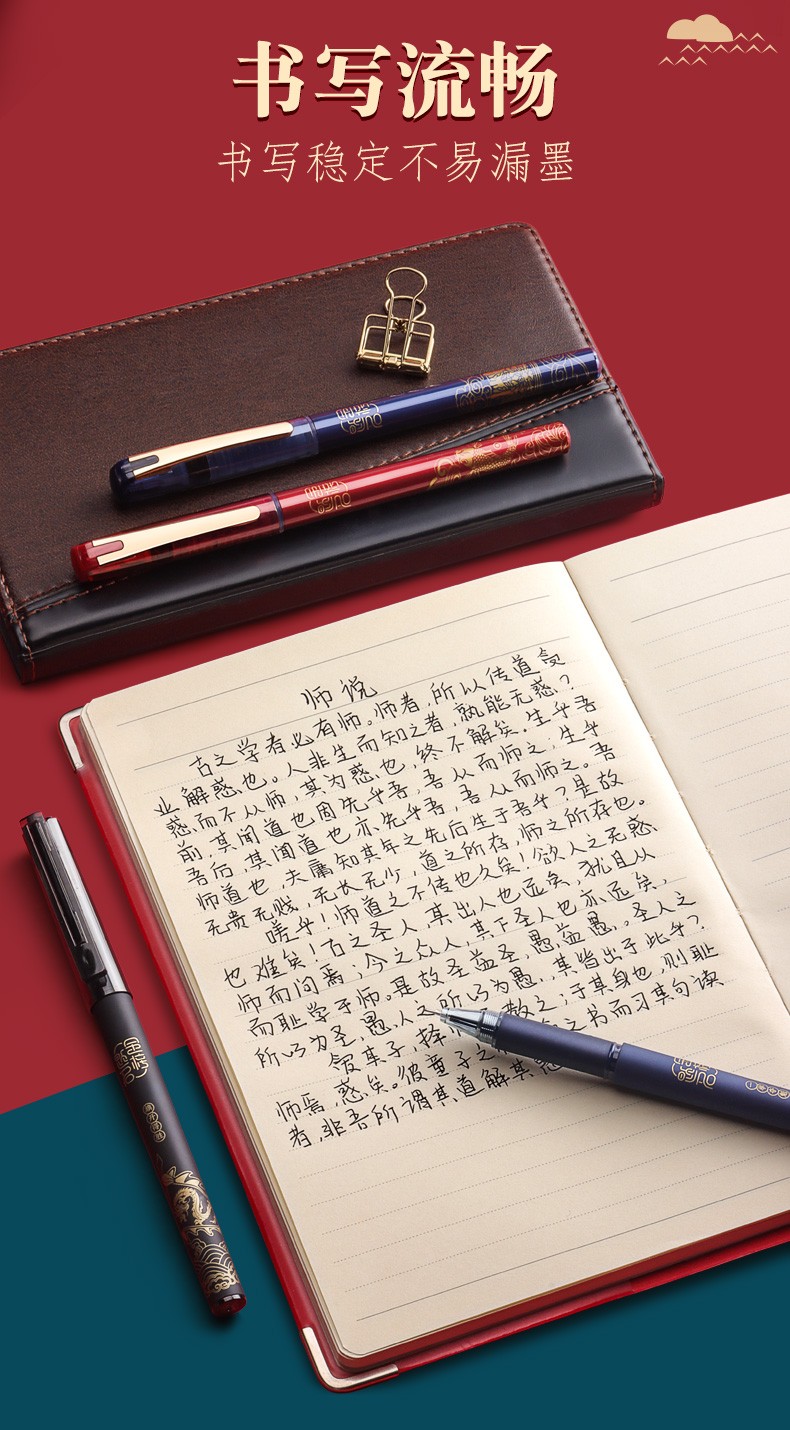 书写流畅
书写稳定不易漏墨
师说
古之学者必有师。师者,所以传道
业解惑也。人非生而知之者,孰能无惑?
惑而不从师,其为惑也,终不解矣。生乎吾
前,其闻道也固先乎吾,吾从而师之;生乎
吾后,其闻道也亦先乎吾,吾从而师之。吾
师道也,夫庸知其年之先后生于吾乎?是故
无贵无贱,无长无少,道之所存,师之所存也。
嗟乎!师道之不传也久矣!欲人之无惑
也难矣!古之圣人,其出人也远矣,犹且从
师而问焉;今之众人,其下圣人也亦远矣,
而耻学于师。是故圣益圣,愚益愚。圣人之
所以为圣,愚人之所以为愚,其皆出于此乎?
其子,择 教之;于其身也,则耻
师焉,惑矣。彼童子之 之书而习其句读
者,非吾所谓其道解其